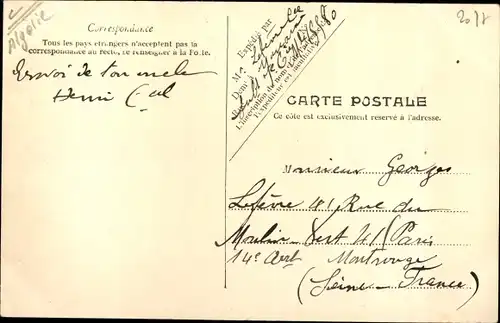 Algérie
Correspondance
Tous les pays étrangers n'acceptent pas la
correspondance au recto, se renseigner à la Poste.
Envoi de ton oncle
Henri
Expédié par
M
Deme
L'inscription du nom
l'expéditeur est
CARTE POSTALE
Ce côté est exclusivement réservé à l'adresse.
Monsieur Georges
Lefèvre 41, Rue du
Moulin-Vert 41 (Paris
14e Arrt Montrouge
(Seine - France)